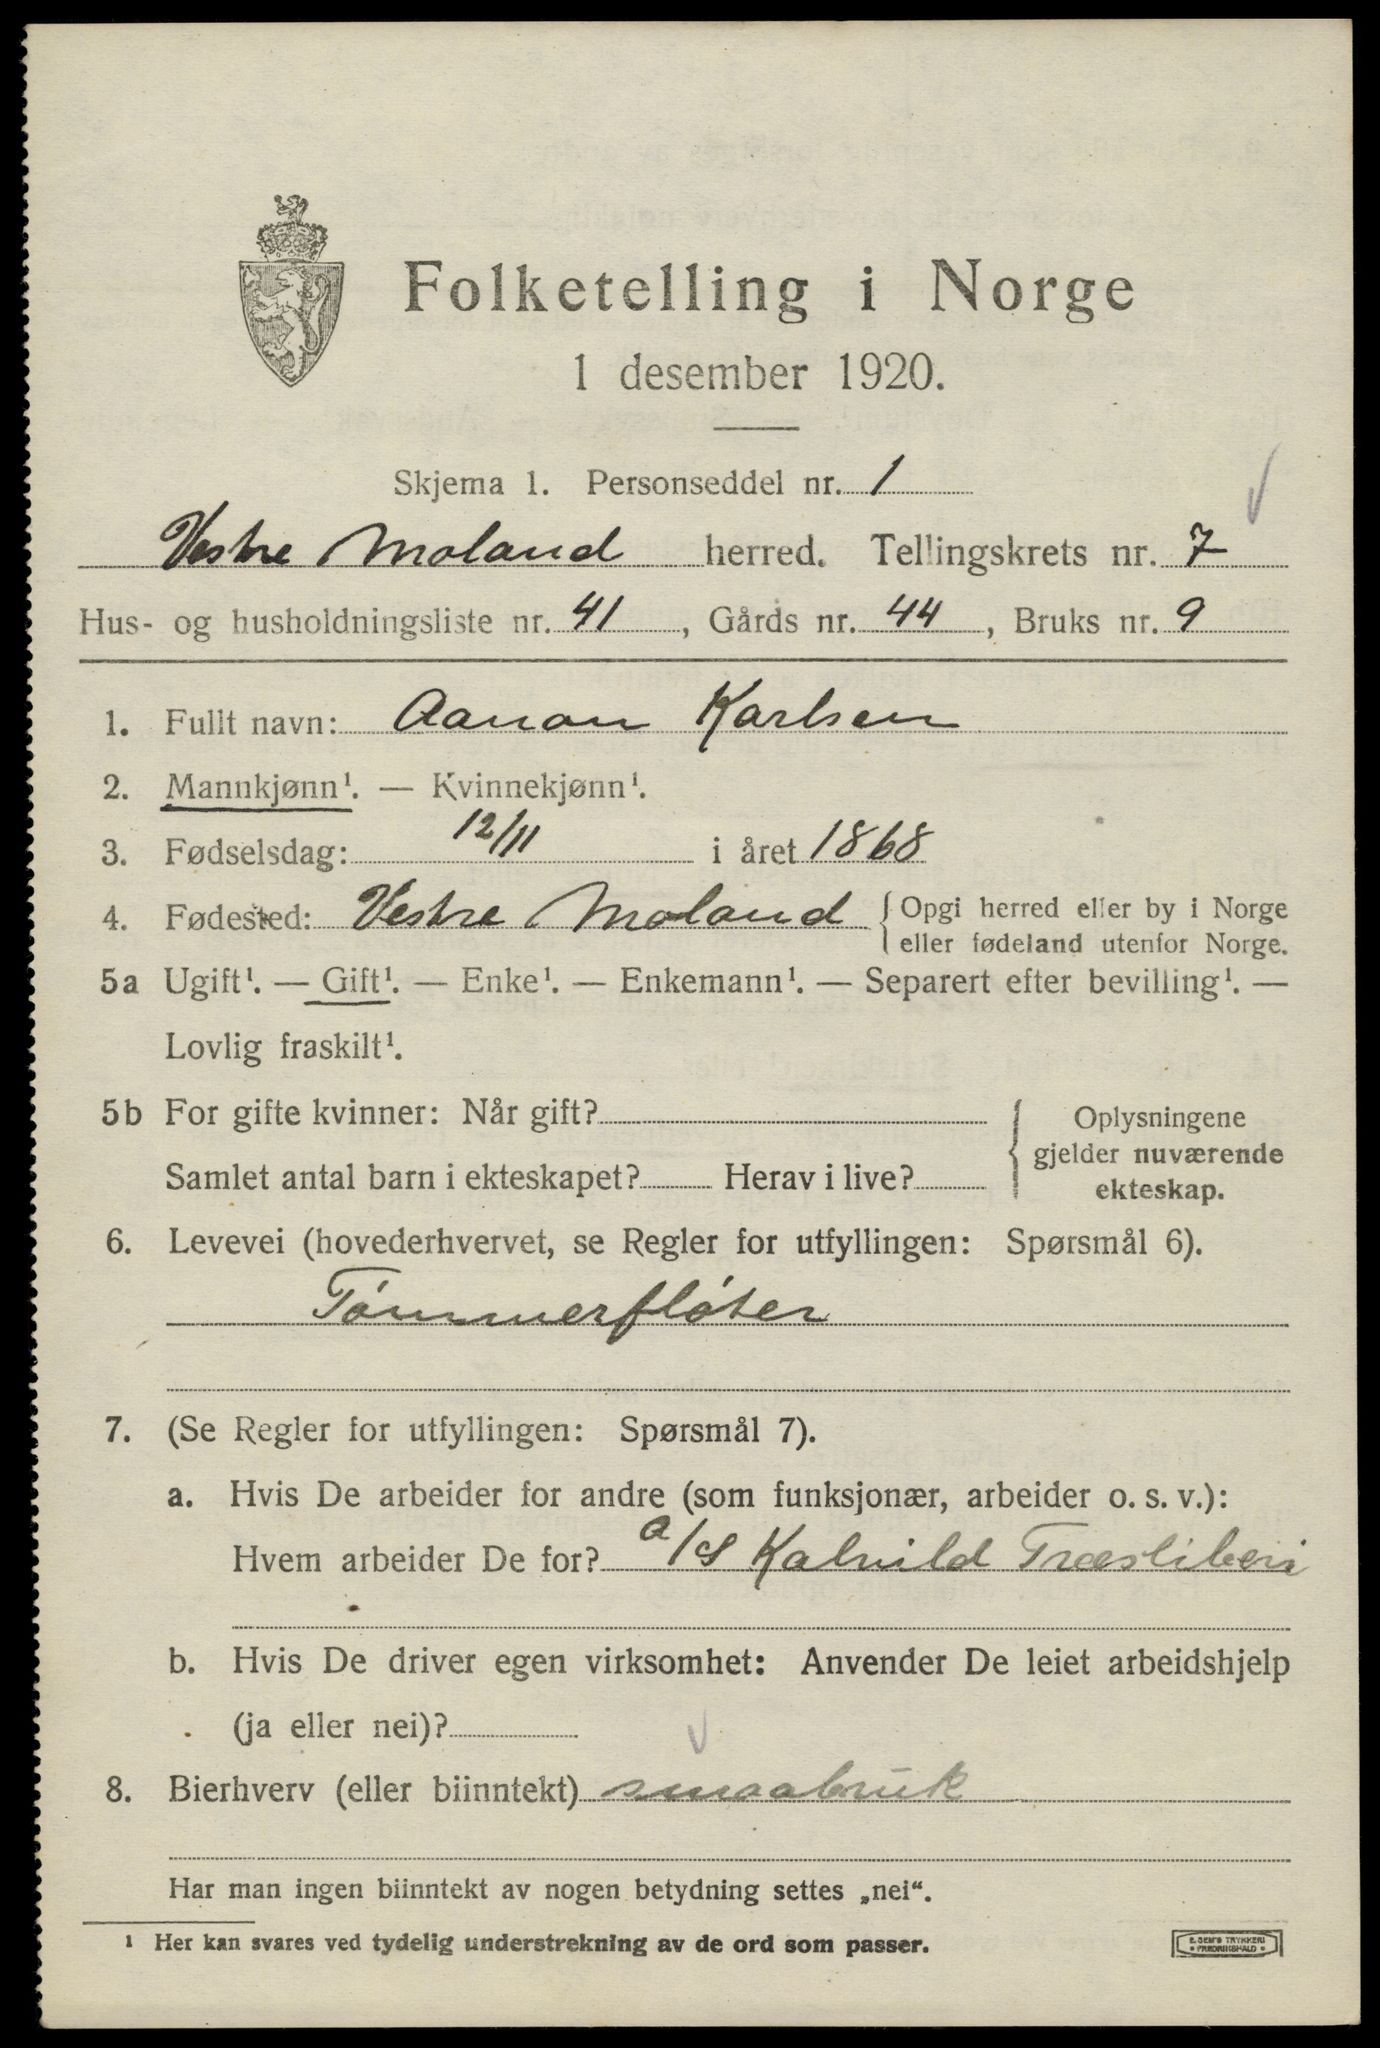 Folketelling i Norge
1 desember 1920.
Skjema 1. Personseddel nr. 1
Vestre Moland herred. Tellingskrets nr. 7
Hus- og husholdningsliste nr. 41, Gårds nr. 44, Bruks nr. 9
1. Fullt navn: Aanon Karlsen
2. Mannkjønn¹. — Kvinnekjønn¹.
3. Fødselsdag: 12/11 i året 1868
4. Fødested: Vestre Moland { Opgi herred eller by i Norge
eller fødeland utenfor Norge.
5a Ugift¹. — Gift¹. — Enke¹. — Enkemann¹. — Separert efter bevilling¹. —
Lovlig fraskilt¹.
5b For gifte kvinner: Når gift?
Samlet antal barn i ekteskapet? Herav i live?
{ Oplysningene
gjelder nuværende
ekteskap.
6. Levevei (hovederhvervet, se Regler for utfyllingen: Spørsmål 6).
Tømmerfløter
7. (Se Regler for utfyllingen: Spørsmål 7).
a. Hvis De arbeider for andre (som funksjonær, arbeider o. s. v.):
Hvem arbeider De for? a/s Kalvild Træsliberi
b. Hvis De driver egen virksomhet: Anvender De leiet arbeidshjelp
(ja eller nei)?
8. Bierhverv (eller biinntekt) smaabruk
Har man ingen biinntekt av nogen betydning settes „nei".
¹ Her kan svares ved tydelig understrekning av de ord som passer.
E. SEM'S TRYKKERI
FREDRIKSHALD